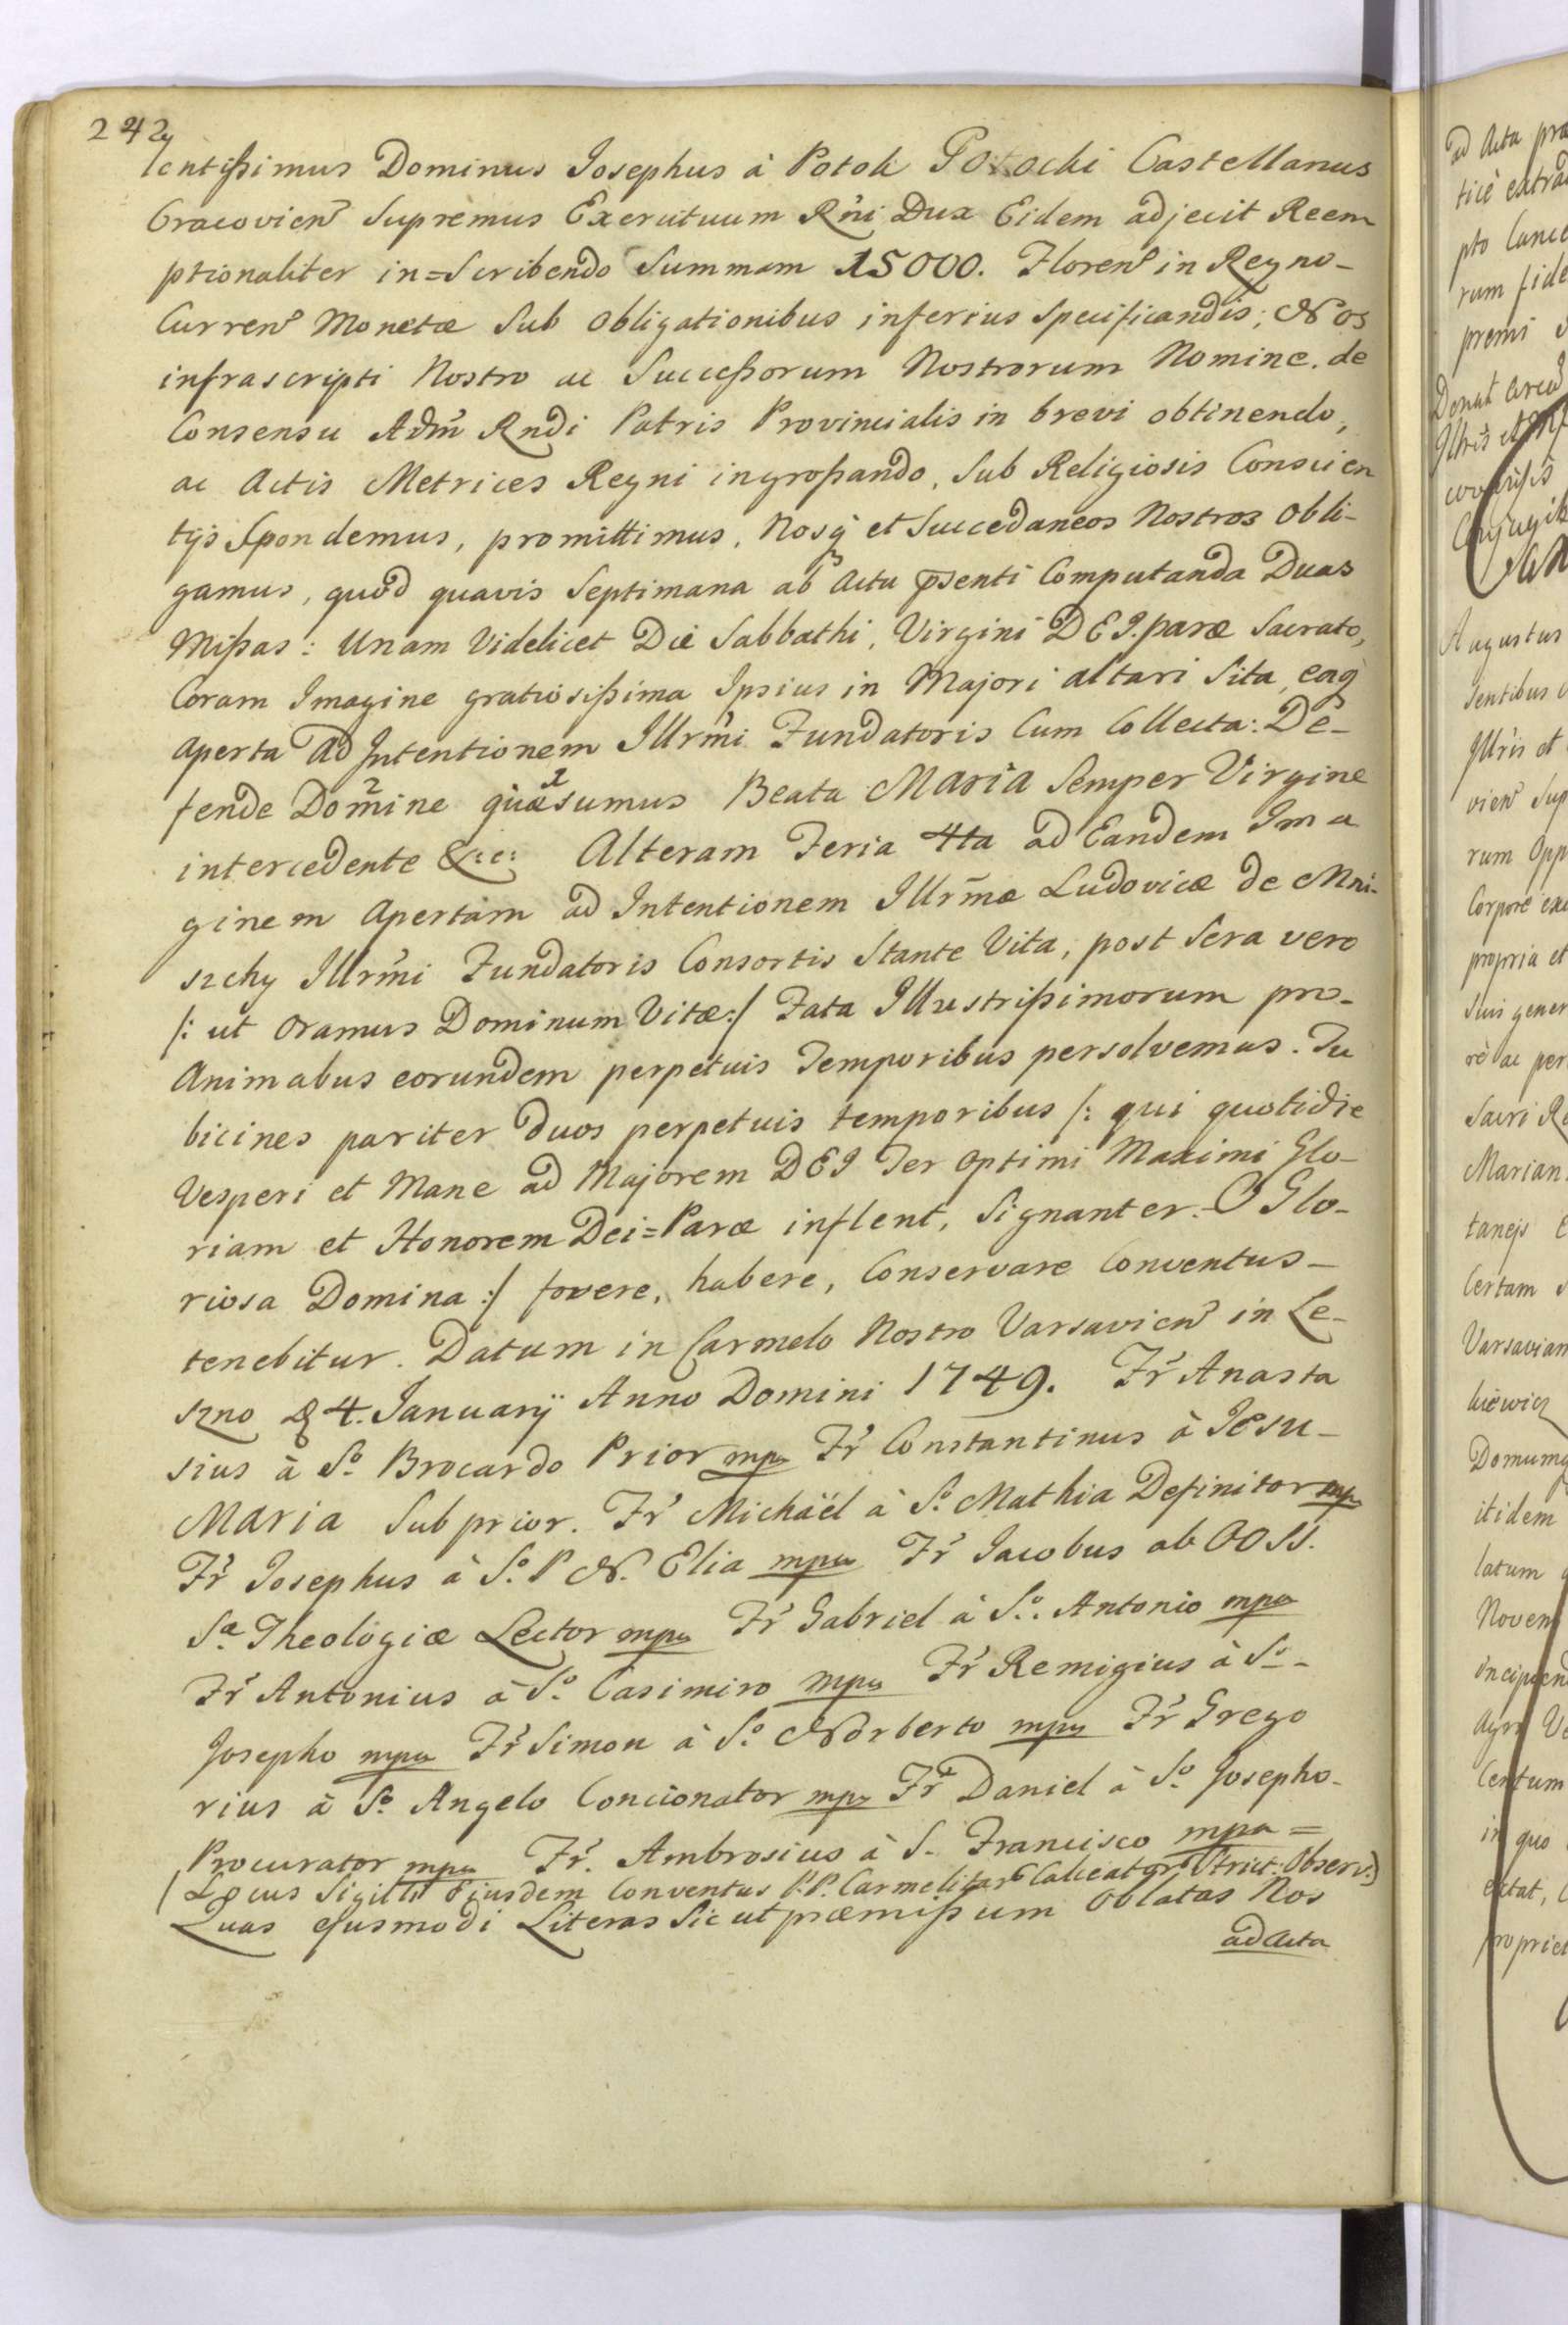 242
lentissimus Dominus Josephus à Potok Potocki Castellanus
Cracovien̄ Supremus Exercituum Rn̄i Dux Eidem adjecit Reem
ptionaliter in=Scribendo Summam 15000. Floren̄ in Regno-
Curren̄ Monetæ Sub obligationibus inferius Specificandis; Nos
infrascripti Nostro ac Successorum Nostrorum Nomine. de
Consensu Adm̄ Rn̄di Patris Provincialis in brevi obtinendo,
ac Actis Metrices Regni ingrossando, Sub Religiosis Conscien
tijs Spondemus, promittimus, Nosq́ et Succedaneos Nostros obli-
gamus, quòd quavis Septimana ab Actu p̄senti Computanda Duas
Missas: Unam Videlicet Die Sabbathi, Virgini DEI.paræ Sacrato,
Coram Imagine gratiosissima Ipsius in Majori altari Sita, eaq́
aperta ad Intentionem Illrm̄i Fundatoris Cum Collecta: De-
fende Domine quæsumus Beata Maria Semper Virgine
intercedente &c: Alteram Feria 4ta ad Eandem Ima
ginem Apertam ad Intentionem Illrm̄æ Ludovicæ de Mni-
szchy Illrm̄i Fundatoris Consortis Stante Vita, post Sera vero
/: ut oramus Dominum Vitæ:/ Fata Illustrissimorum pro-
Animabus eorundem perpetuis Temporibus persolvemus. Tu
bicines pariter duos perpetuis temporibus /: qui quotidie
Vesperi et Mane ad Majorem DEI Ter Optimi Maximi Glo-
riam et Honorem Dei=Paræ inflent, Signanter. O Glo-
riosa Domina :/ fovere, habere, Conservare Conventus-
tenebitur. Datum in Carmelo Nostro Varsavien̄ in Le-
szno d 4. Januarij Anno Domini 1749. Fr̄ Anasta
sius à So Brocardo Prior mpa Fr̄ Constantinus à Jesu-
Maria Sub prior. Fr̄ Michaël à So. Mathia Definitor mpa
Fr̄ Josephus à So. P. N. Elia mpa Fr̄ Jacobus ab OO SS.
Sæ Theologiæ Lector mpa Fr̄ Gabriel à So. Antonio mpa
Fr̄ Antonius à So. Casimiro mpa Fr̄ Remigius à So-
Josepho mpa Fr̄ Simon à So. Norberto mpa Fr̄ Grego
rius à So. Angelo Concionator mpa Fr̄ Daniel à So. Josepho-
Procurator mpa Fr̄. Ambrosius à S. Francisco mpa=
(Locus Sigilli Ejusdem Conventus P.P. Carmelitar̄ Calceator̄ Strict: Observ:)
Quas ejusmodi Literas Sic ut præmissum oblatas Nos
ad Acta
ad Acta
pto
rum
premi
Augustus
Sentibus
Illris et
rum
propria et
Suis
Sacri
Marian
Certam
Varsavian
itidem
latum
Centum
in quo